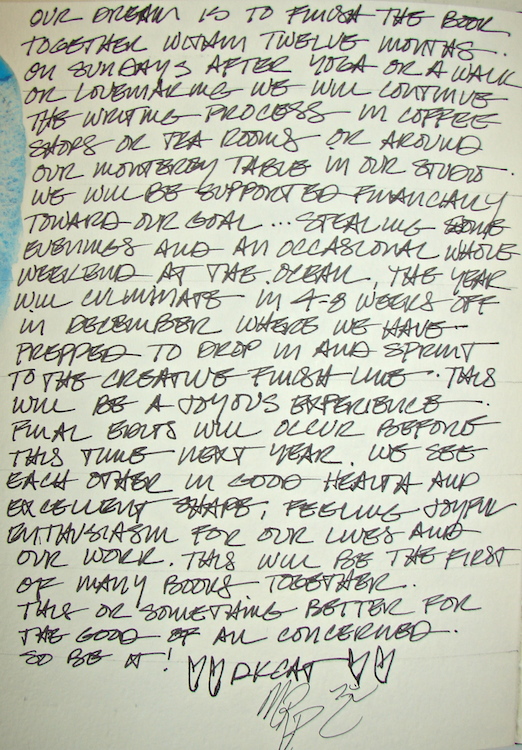 OUR DREAM IS TO FINISH THE BOOK
TOGETHER WITHIN TWELVE MONTHS.
ON SUNDAYS AFTER YOGA OR A WALK
OR LOVEMAKING WE WILL CONTINUE
THE WRITING PROCESS IN COFFEE
SHOPS OR TEA ROOMS OR AROUND
OUR MONTEREY TABLE IN OUR STUDIO.
WE WILL BE SUPPORTED FINANCIALLY
TOWARD OUR GOAL... STEALING SOME
EVENINGS AND AN OCCASIONAL WHOLE
WEEKEND AT THE OCEAN. THE YEAR
WILL CULMINATE IN 4-8 WEEKS OFF
IN DECEMBER WHERE WE HAVE
PREPPED TO DROP IN AND SPRINT
TO THE CREATIVE FINISH LINE. THIS
WILL BE A JOYOUS EXPERIENCE.
FINAL EDITS WILL OCCUR BEFORE
THIS TIME NEXT YEAR. WE SEE
EACH OTHER IN GOOD HEALTH AND
EXCELLENT SHAPE, FEELING JOYFUL
ENTHUSIASM FOR OUR LIVES AND
OUR WORK. THIS WILL BE THE FIRST
OF MANY BOOKS TOGETHER.
THIS OR SOMETHING BETTER FOR
THE GOOD OF ALL CONCERNED.
SO BE IT! DKCAT